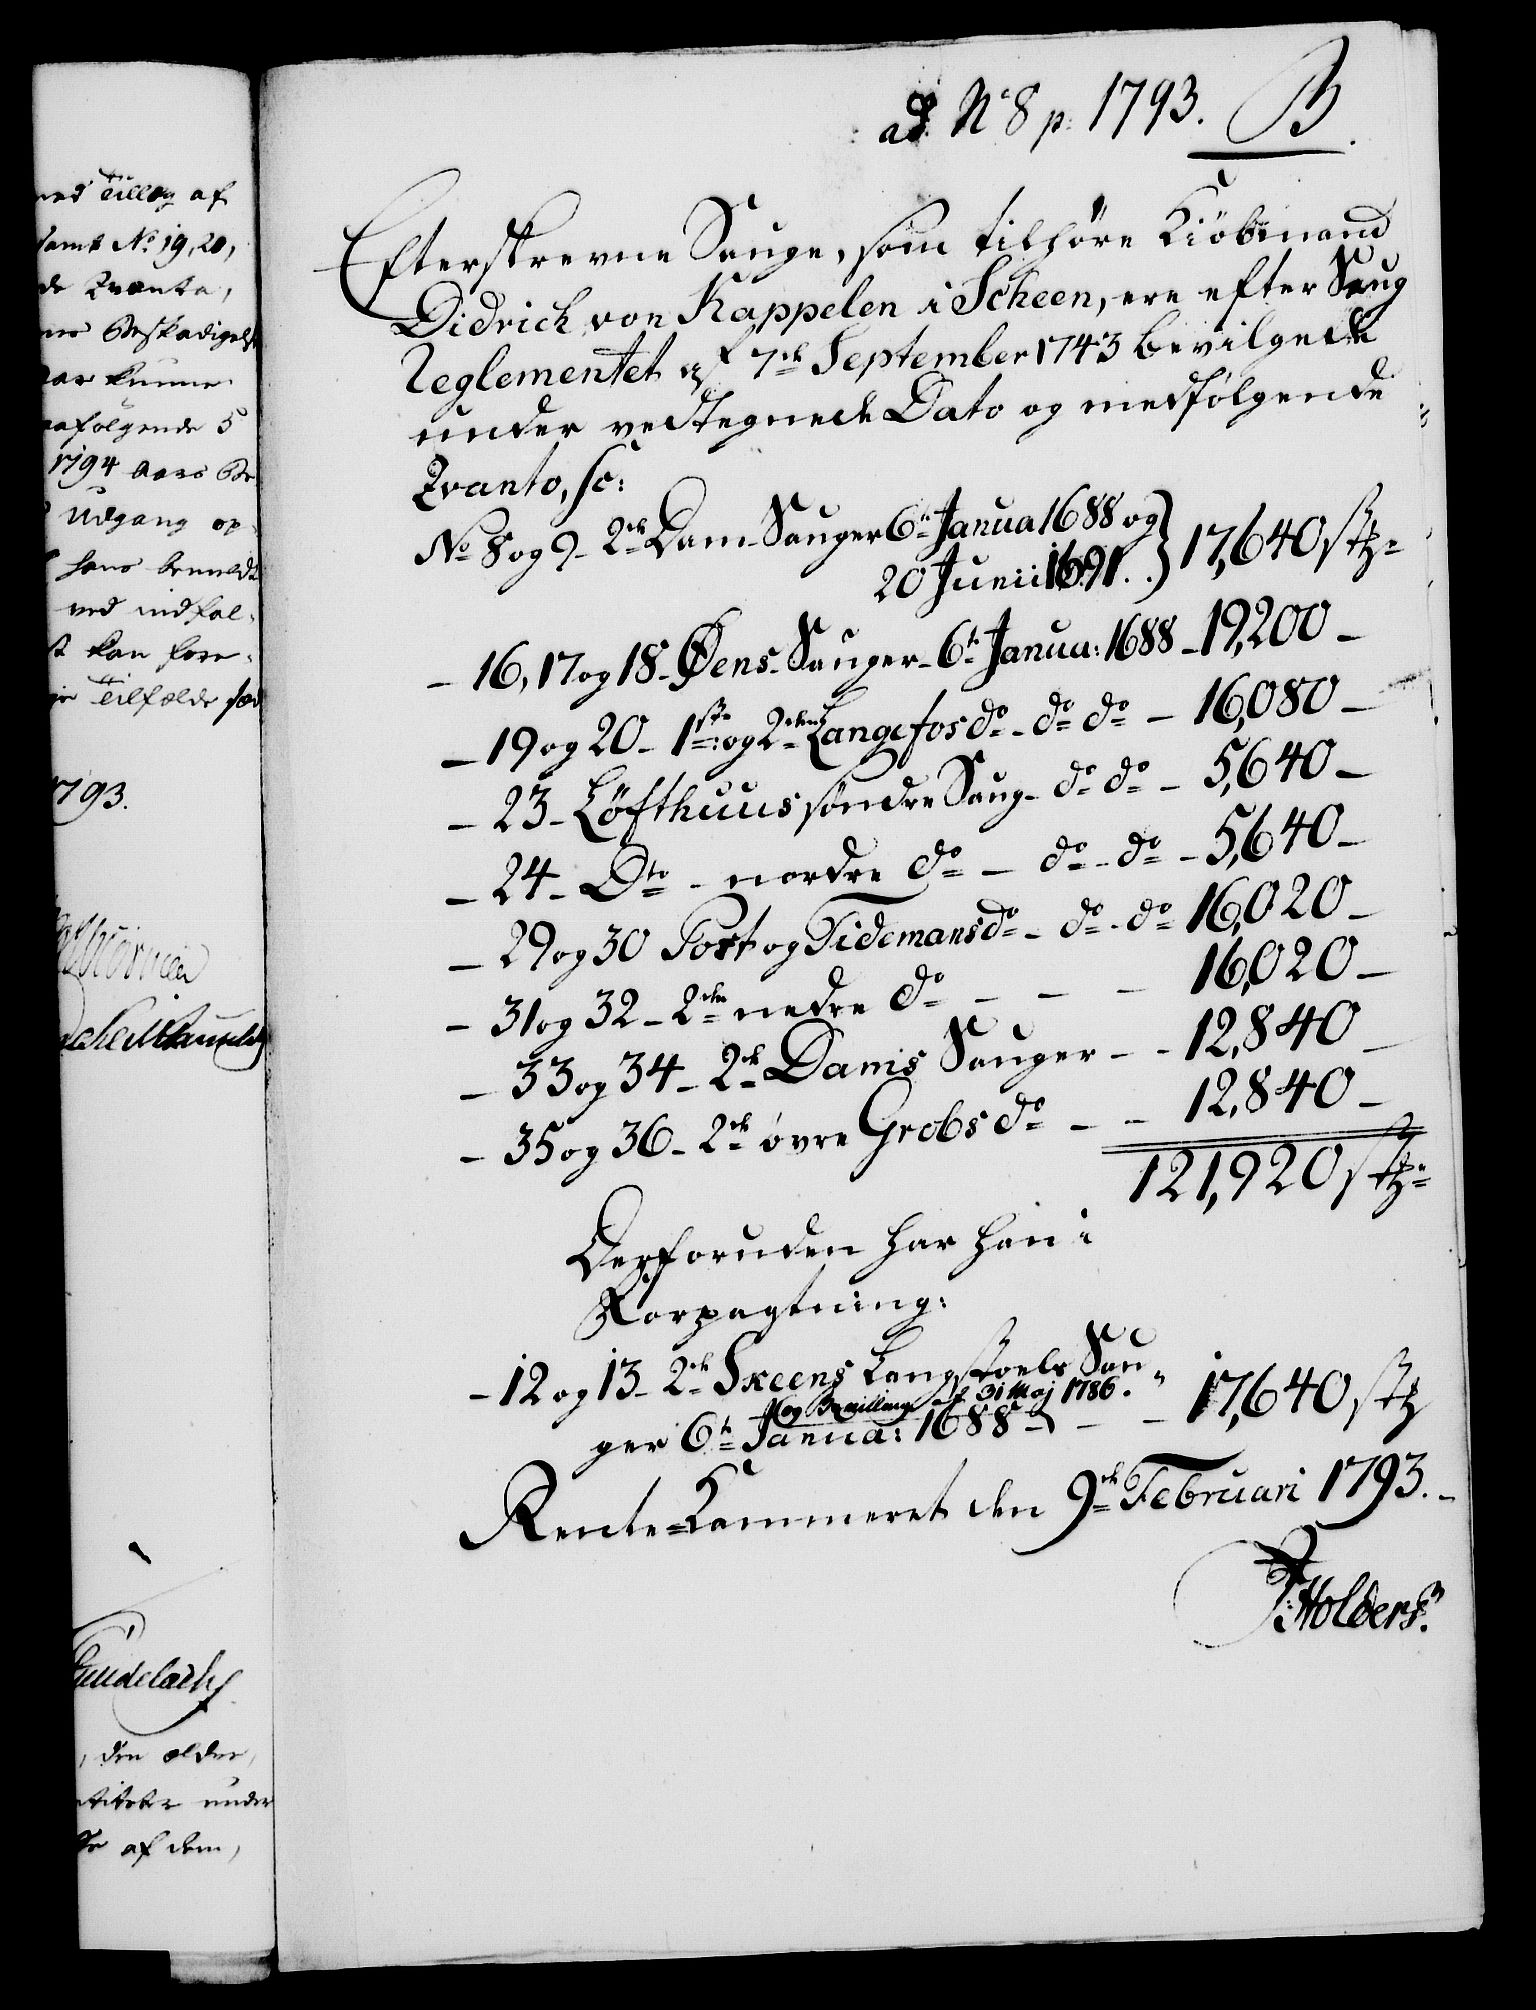 ad. No 8 p: 1793. B.
Efterskrevne Sauge, som tilhøre Kiöbmand
Didrich von Kappelen i Scheen, ere efter Saug
Reglementet af 7de September 1743 bevilgede
under vedtegnede Dato og medfølgende
Qvanto, sc:
No 8 og 9 - 2de Dam-Sauger 6te Janua 1688 og
20 Junii 1691. . } 17,640 stk=
- 16, 17 og 18 - Øens Sauger - 6te Janua: 1688 - 19,200 -
- 19 og 20 - 1ste og 2den Langefos do - do do - 16,080 -
- 23 - Løfthuus søndre Saug - do do - 5,640 -
- 24 - Dto - nordre do - do - do - 5,640 -
- 29 og 30 Post og Tidemans do - do - do 16,020 -
- 31 og 32 - 2de nedre do - - - 16,020 -
- 33 og 34 - 2de Dams Sauger - - 12,840 -
- 35 og 36 - 2de øvre Grobs do - - 12,840 -
121,920 stk=
Desforuden har han i
Forpagtning:
- 12 og 13 - 2de Skeens Langstoels Sau=
og Bevilling af 31 Maj 1786.
ger 6te Janua: 1688 - - - 17,640 stk
Rente=Kammeret den 9de Februari 1793. -
Holders.
med Tillæg af
samt No 19, 20,
de Qvanta,
Beskadigelse
kunne
følgende 5
1794 Aars
Udgang op-
hans
ved indfal-
kan fore-
Tilfælde
1793.
den ældre,
under
af dem,